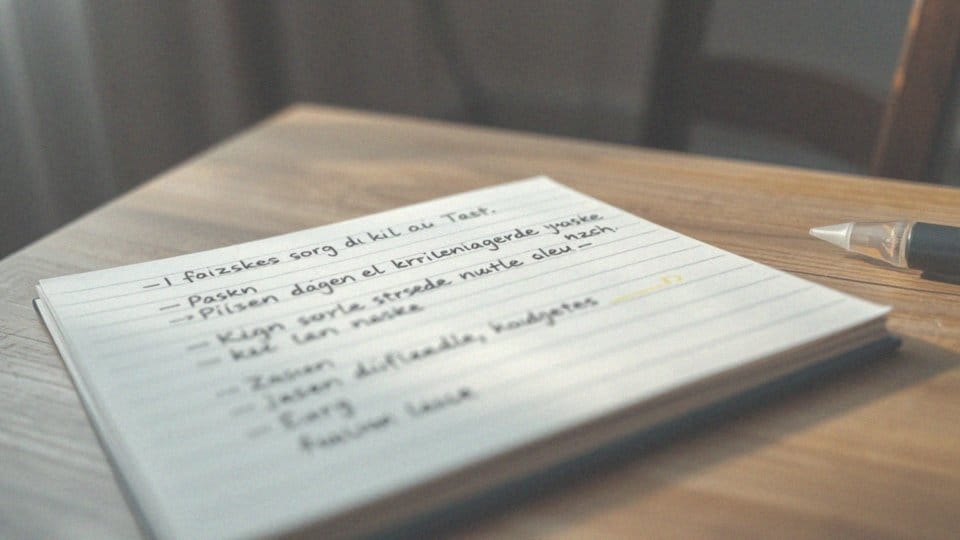 – I faizskes sorg di kil aú Tast.
– Paskn
– Pilsen dágen el krrileniagerde yraske
– Kign sørle strsede nutle aleu – nzch.
– ket len naske
– Zasien
– Jasen diifleedle, kadgetes
– Eorg